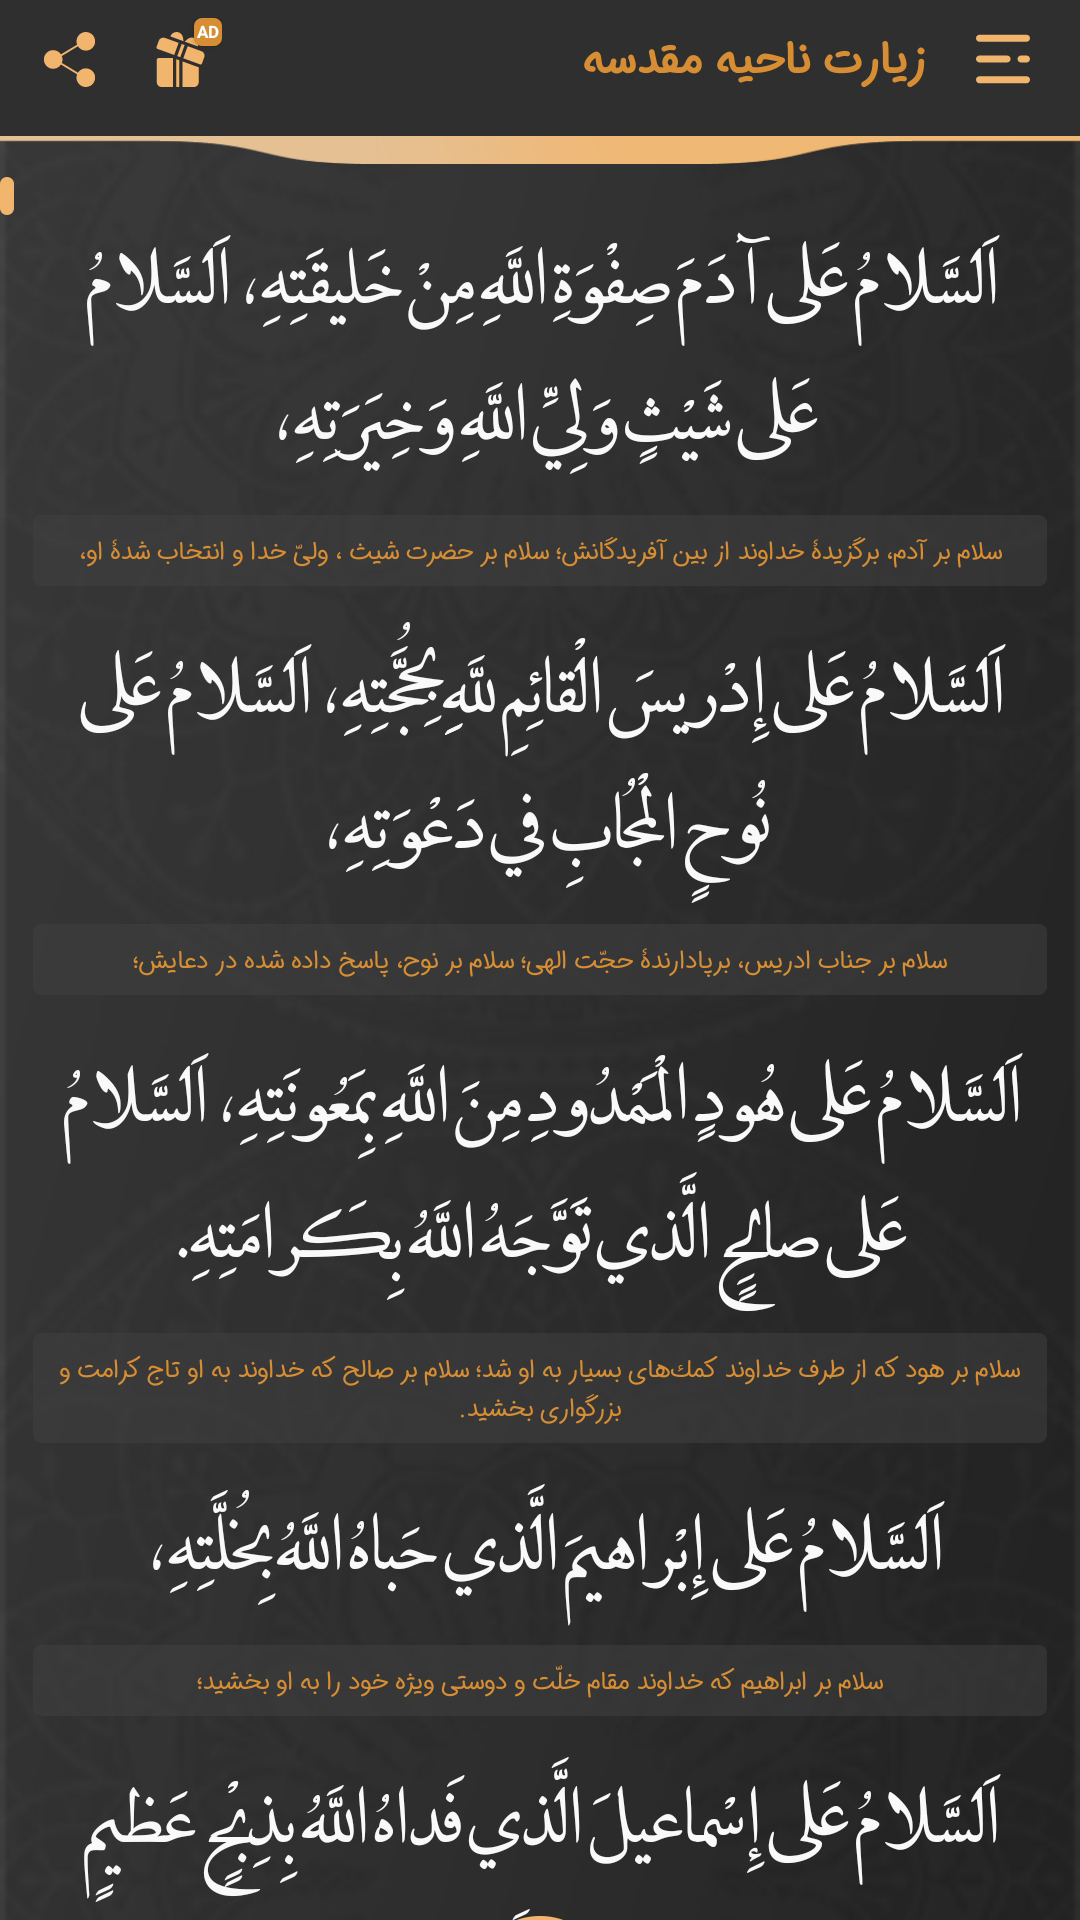 زیارت ناحیه مقدسه
AD
اَلسَّلامُ عَلى آدَمَ صِفْوَةِ اللَّهِ مِنْ خَليقَتِهِ، اَلسَّلامُ
عَلى شَيْثٍ وَلِيِّ اللَّهِ وَخِيَرَتِهِ،
سلام بر آدم، برگزیدۀ خداوند از بین آفریدگانش؛ سلام بر حضرت شیث ، ولیّ خدا و انتخاب شدۀ او،
اَلسَّلامُ عَلى إِدْريسَ الْقائِمِ للَّهِِ بِحُجَّتِهِ، اَلسَّلامُ عَلى
نُوحٍ الْمُجُابِ في دَعْوَتِهِ،
سلام بر جناب ادریس، برپادارندۀ حجّت الهی؛ سلام بر نوح، پاسخ داده شده در دعایش؛
اَلسَّلامُ عَلى هُودٍ الْمَمْدُودِ مِنَ اللَّهِ بِمَعُونَتِهِ، اَلسَّلامُ
عَلى صالِحٍ الَّذي تَوَّجَهُ اللَّهُ بِكَرامَتِهِ.
سلام بر هود که از طرف خداوند كمك‌های بسیار به او شد؛ سلام بر صالح که خداوند به او تاج کرامت و
بزرگواری بخشید.
اَلسَّلامُ عَلى إِبْراهيمَ الَّذي حَباهُ اللَّهُ بِخُلَّتِهِ،
سلام بر ابراهیم که خداوند مقام خلّت و دوستی ویژه خود را به او بخشید؛
اَلسَّلامُ عَلى إِسْماعيلَ الَّذي فَداهُ اللَّهُ بِذِبْحٍ عَظيمٍ